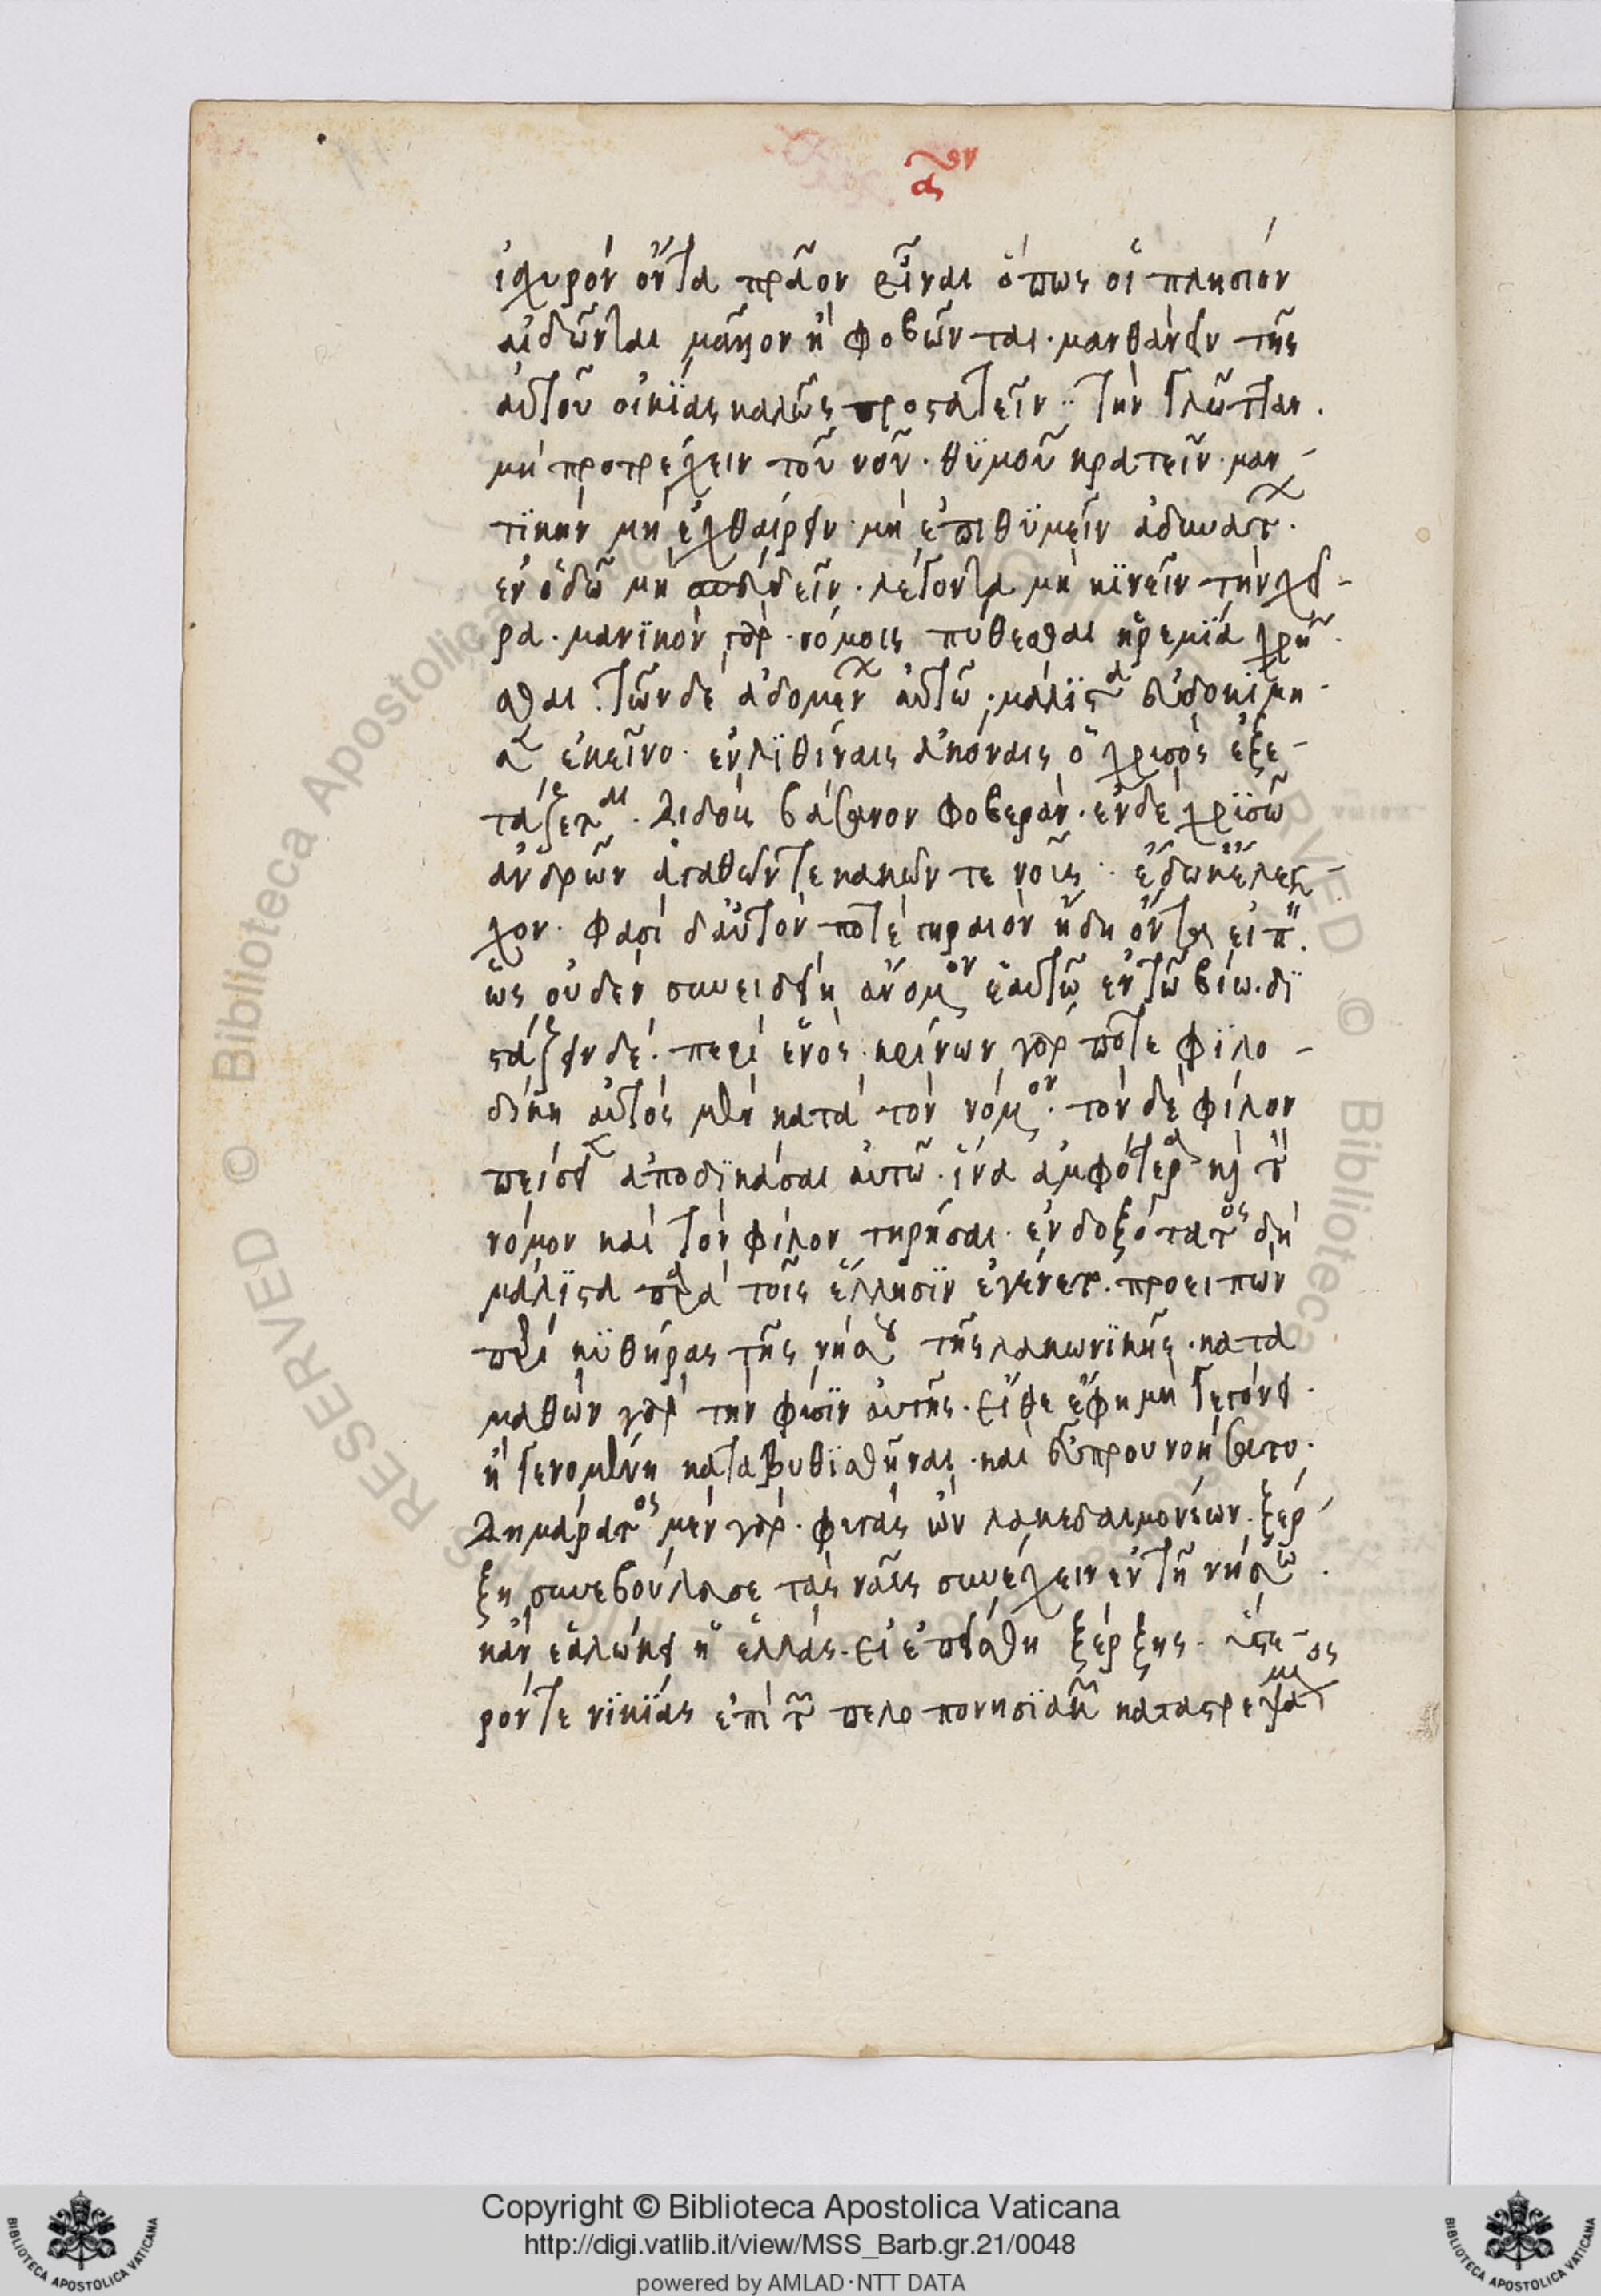 αον
ἰσχυρόν ὄντα πρᾶον εἶναι ὅπως οἱ πλησιόν
αἰδῶνται μᾶλλον ἢ φοβῶνται · μανθάνειν τῆς
αὐτοῦ οἰκίας καλῶς προστατεῖν ·· τὴν γλῶτταν .
μὴ προτρέχειν τοῦ νοῦ · θυμοῦ κρατεῖν · μαν-
τϊκὴν μὴ ἐχθαίρειν · μὴ ἐπιθϋμεῖν ἀδυνάτων .
ἐν ὁδῷ μὴ σπεύδειν · λέγοντα μὴ κϊνεῖν τὴν χεῖ-
ρα · μανϊκὸν γάρ · νόμοις πύθεσθαι ἠρεμΐα χρῆ
σθαι . τῶν δὲ ἀδομένων αὐτῶ · μάλϊστα εὐδοκίμη
σεν ἐκεῖνο · ἐν λϊθίναις ἀκόναις ὁ χρυσὸς ἐξε-
τάζεται · διδοὺς βάσανον φοβεράν · ἐν δὲ χρϋσῶ
ἀνδρῶν ἀγαθῶν τε κακῶν τε νοῦς · ἔδωκ' ἔλεγ-
χον · φασὶ δ' αὐτόν ποτε γηραιὸν ἤδη ὄντα εἰπεῖν .
ὡς οὐδὲν συνειδείη ἄνομον ἑαυτῷ ἐν τῶ βίω · δϊ
στάζειν δέ · περὶ ἑνός · κρίνων γάρ ποτε φϊλο-
δίκη αὐτὸς μὲν κατὰ τὸν νόμον · τὸν δὲ φίλον
πείσειεν ἀποδϊκάσαι αὐτῶ · ἵνα ἀμφότερα καὶ τὸν
νόμον καὶ τὸν φίλον τηρῆσαι · ἐνδοξότατος δὴ
μάλϊστα παρὰ τοῖς ἕλλησϊν ἐγένετο · προειπὼν
περὶ κϋθήρας τῆς νήσου τῆς λακωνϊκῆς · κατα
μαθὼν γὰρ τὴν φύσϊν αὐτῆς · εἴθε ἔφη μὴ γεγόνει .
ἢ γενομένη καταβυθϊσθῆναι · καὶ εὖ προυνοήσατο .
Δημάρατος μὲν γάρ · φυγὰς ὢν λακεδαιμονίων · ξέρ-
ξη συνεβούλευσε τὰς ναῦς συνέχειν ἐν τῆ νήσω .
κἂν ἑαλώκει ἡ ἑλλάς · εἰ ἐπείσθη ξέρξης · ὕστε-
ρόν τε νϊκίας ἐπὶ τῶν πελοπονησϊακῶν καταστρεψάμενος
Copyright © Biblioteca Apostolica Vaticana
http://digi.vatlib.it/view/MSS_Barb.gr.21/0048
powered by AMLAD·NTT DATA